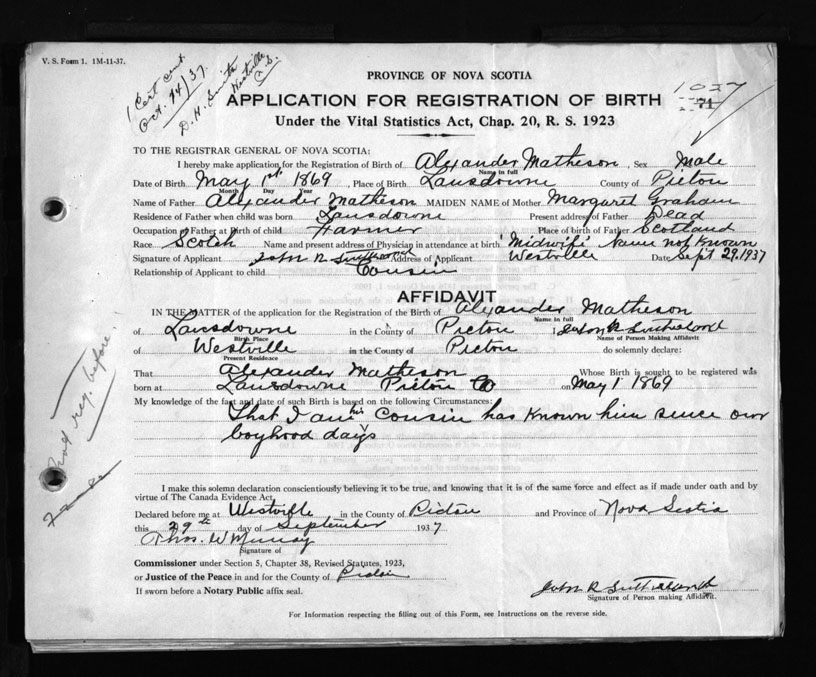 V. S. Form 1. 1M-11-37.
1 Cert cont
Oct. 14/37.
D. H. Smith
Westville
PROVINCE OF NOVA SCOTIA
1027
71
APPLICATION FOR REGISTRATION OF BIRTH
Under the Vital Statistics Act, Chap. 20, R. S. 1923
TO THE REGISTRAR GENERAL OF NOVA SCOTIA:
I hereby make application for the Registration of Birth of Alexander Matheson, Sex Male
Name in full
Date of Birth May 1st 1869, Place of Birth Lansdowne County of Pictou
Month Day Year
Name of Father Alexander Matheson MAIDEN NAME of Mother Margaret Graham
Residence of Father when child was born Lansdowne Present address of Father Dead
Occupation of Father at Birth of child Farmer Place of Birth of Father Scotland
Race Scotch Name and present address of Physician in attendance at birth 'Midwife' Name not known
Signature of Applicant John R Sutherland Address of Applicant Westville Date Sept 29.1937
Relationship of Applicant to child Cousin
AFFIDAVIT
IN THE MATTER of the application for the Registration of the Birth of Alexander Matheson
Name in full
of Lansdowne in the County of Pictou I John R Sutherland
Birth Place Name of Person Making Affidavit
of Westville in the County of Pictou do solemnly declare:
Present Residence
That Alexander Matheson Whose Birth is sought to be registered was
born at Lansdowne Pictou Co on May 1 1869
My knowledge of the fact and date of such Birth is based on the following Circumstances:
That I am his Cousin has known him since our
boyhood days
not reg. before.
I make this solemn declaration conscientiously believing it to be true, and knowing that it is of the same force and effect as if made under oath and by
virtue of The Canada Evidence Act,
Declared before me at Westville in the County of Pictou and Province of Nova Scotia
this 29th day of September 1937
Thos. W Murray
Signature of
Commissioner under Section 5, Chapter 38, Revised Statutes, 1923,
or Justice of the Peace in and for the County of Pictou
If sworn before a Notary Public affix seal.
John R Sutherland
Signature of Person making Affidavit.
For Information respecting the filling out of this Form, see Instructions on the reverse side.